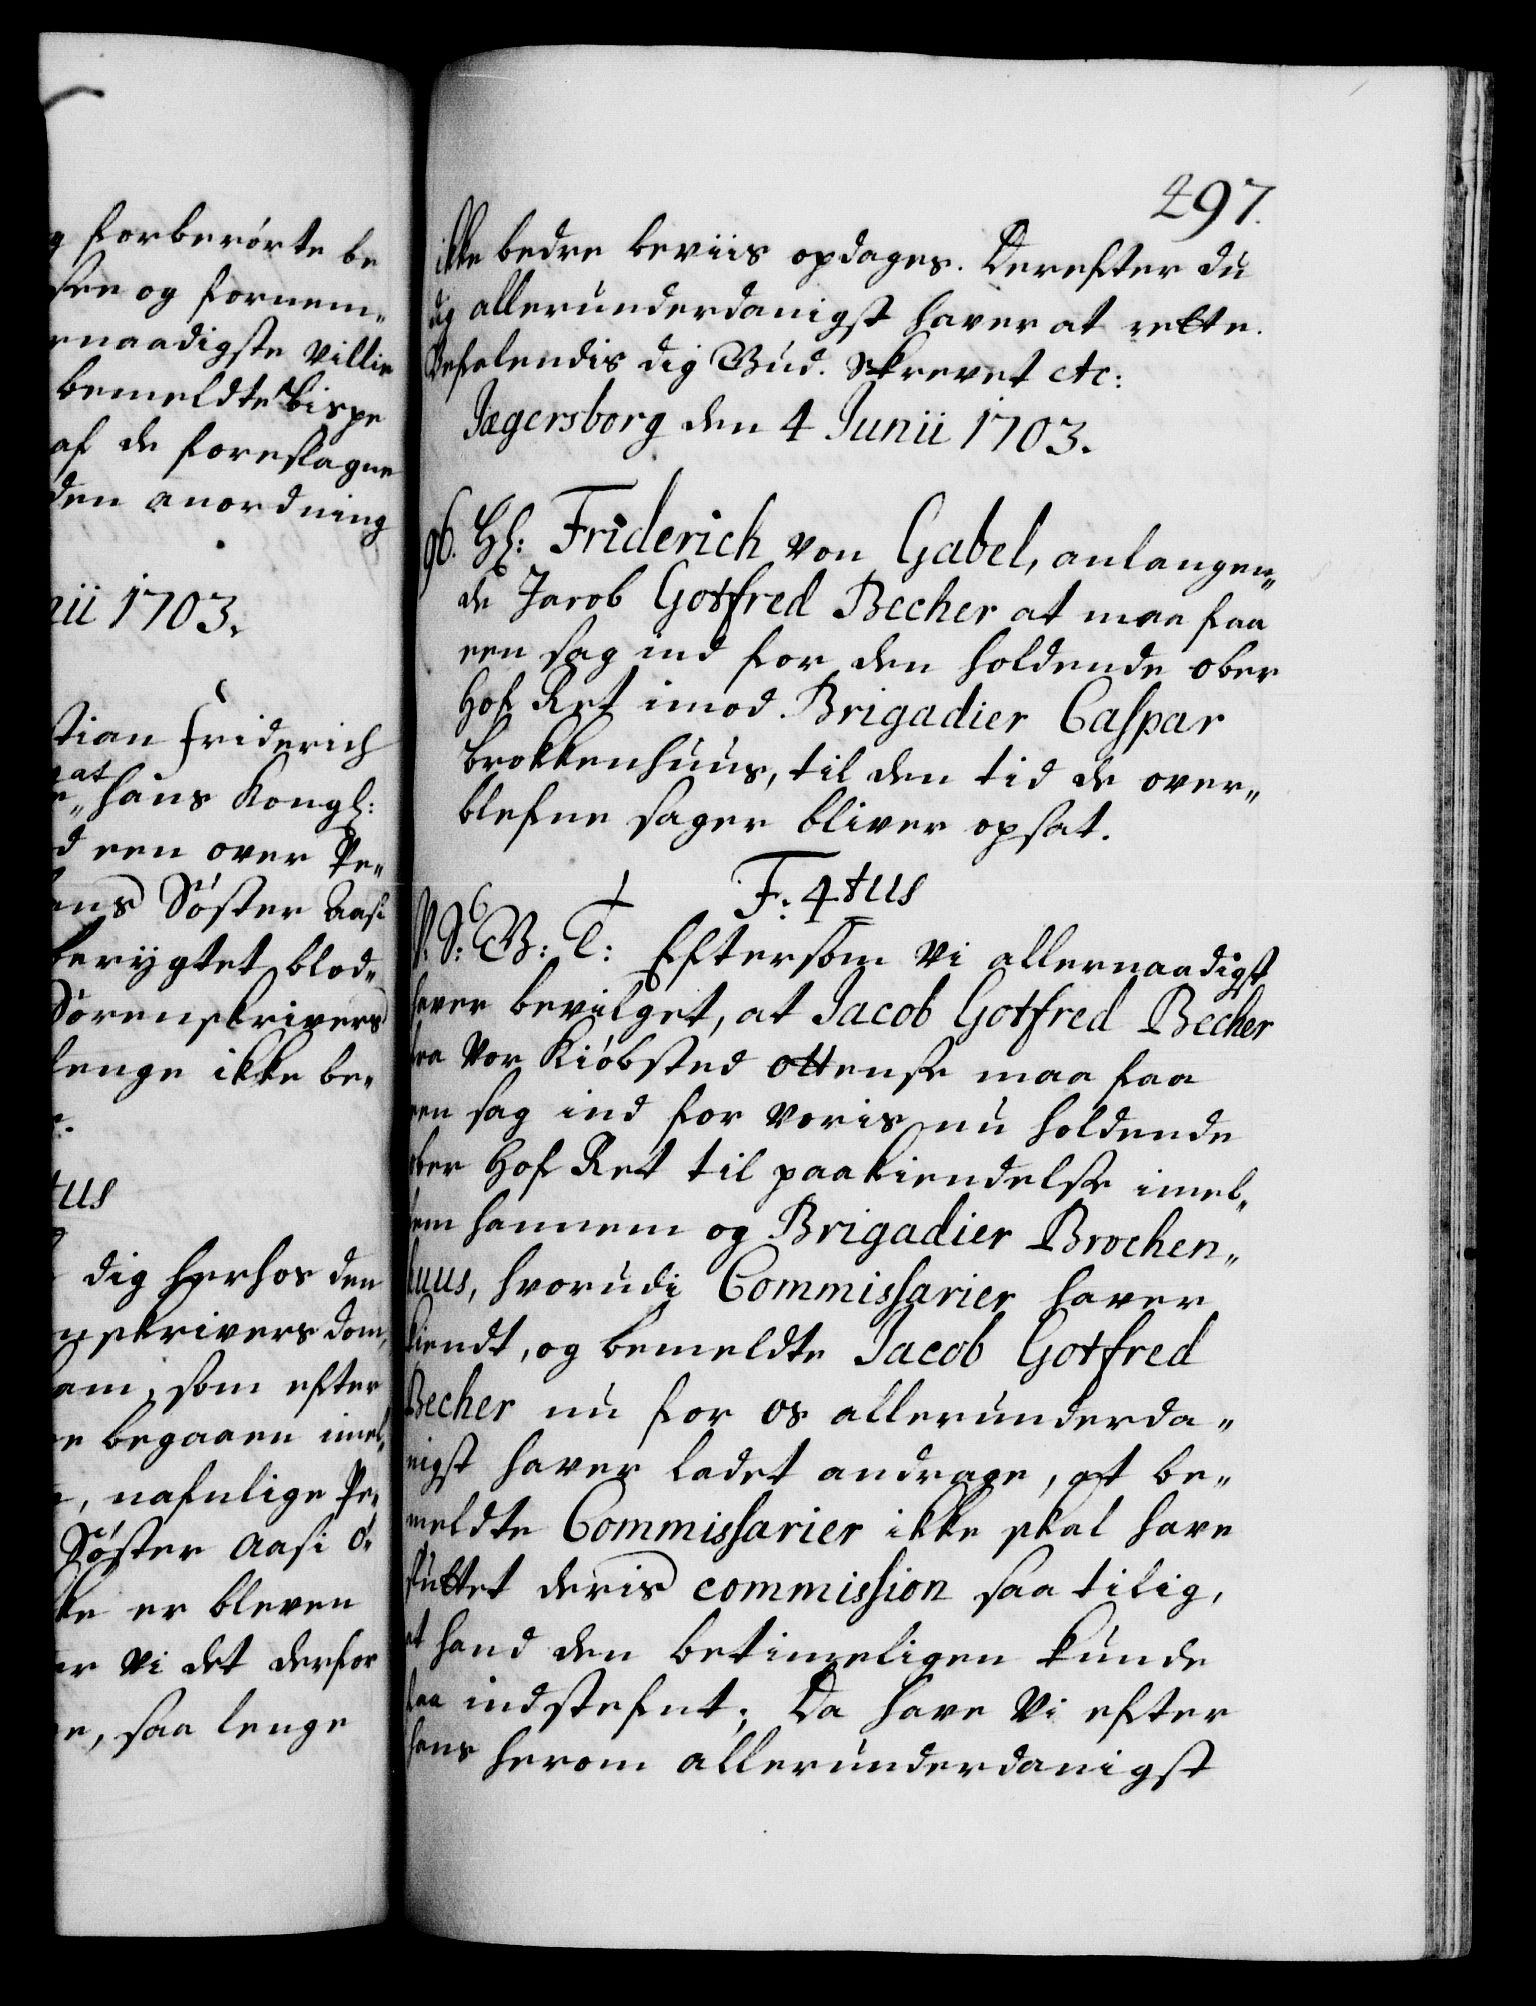 forberørte be
see og fornem„
naadigste Villie
bemeldte Bispe
af de foreslagne
den anordning
nii 1703.
stian Friderich
at hans Kongl:
d een over Pe„
ens Søster Aasi
berygtet blod„
Sorenskrivers
lenge ikke be„
tus
dig herhos den
nskrivers dom,
ham, som efter
begaaen imel„
, nafnlige Pe„
Søster Aasi O„
ke er bleven
er Vi det derfor
e, saa lenge
497.
ikke bedre beviis opdages. Derefter du
dig allerunderdanigst haver at rette.
Befalendis dig Gud. Skrevet etc:
Jægersborg den 4 Junii 1703.
96. Hl: Friderich von Gabel, anlangen„
de Jacob Gotfred Becher at maa faa
een sag ind for den holdende ober
Hof Ret imod Brigadier Caspar
Brokkenhuus, til den tid de over„
blefne sager bliver opsat.
F: 4tus
V: S: G: T: Eftersom Vi allernaadigst
haver bevilget, at Jacob Gotfred Becher
fra Vor Kiøbsted Ottense maa faa
een sag ind for Voris nu holdende
ober Hof Ret til paakiendelse imel„
lem hannem og Brigadier Brochen„
huus, hvorudi Commissarier haver
kiendt, og bemeldte Jacob Gotfred
Becher nu for os allerunderda„
nigst haver ladet andrage, at be„
meldte Commissarier ikke skal have
sluttet deris commission saa tilig,
at hand den betimeligen kunde
faa indstefnt; Da have Vi efter
hans herom allerunderdanigst